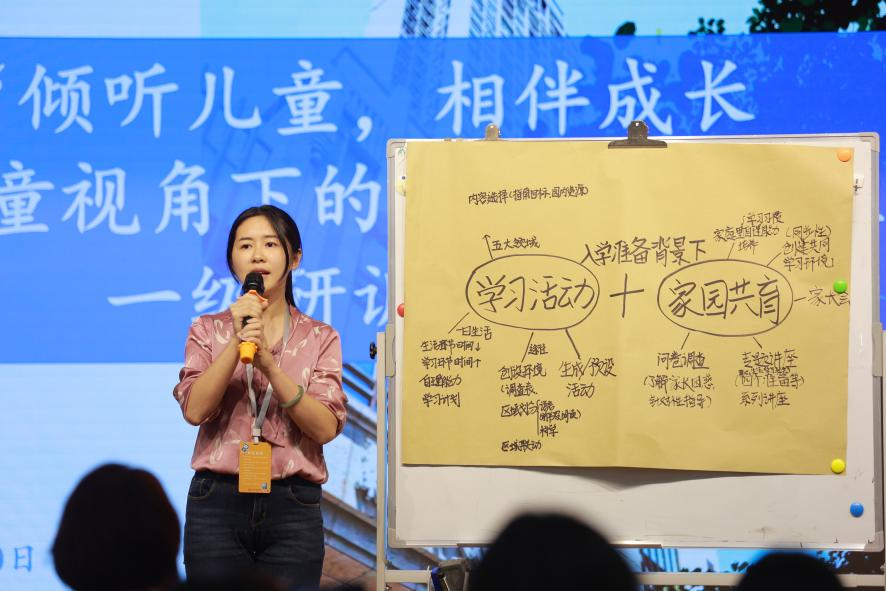 倾听儿童，相伴成长
童视角下的
一级 研训
日
内容选择(指南目标、园内资源)
五大领域
入学准备背景下
学习活动
+
家园共育
学习习惯
家庭里自理能力
培养
(同步性)
创建共同
学习环境
一家长会
一日生活
生活环节时间↓
学习环节时间↑
自理能力
学习计划
创设环境
(调查表
区域划分
语言
科学
区域联动
生成/预设
活动
问卷调查
(了解家长困惑
针对性指导)
专题讲座
(四个准备等)
系列讲座